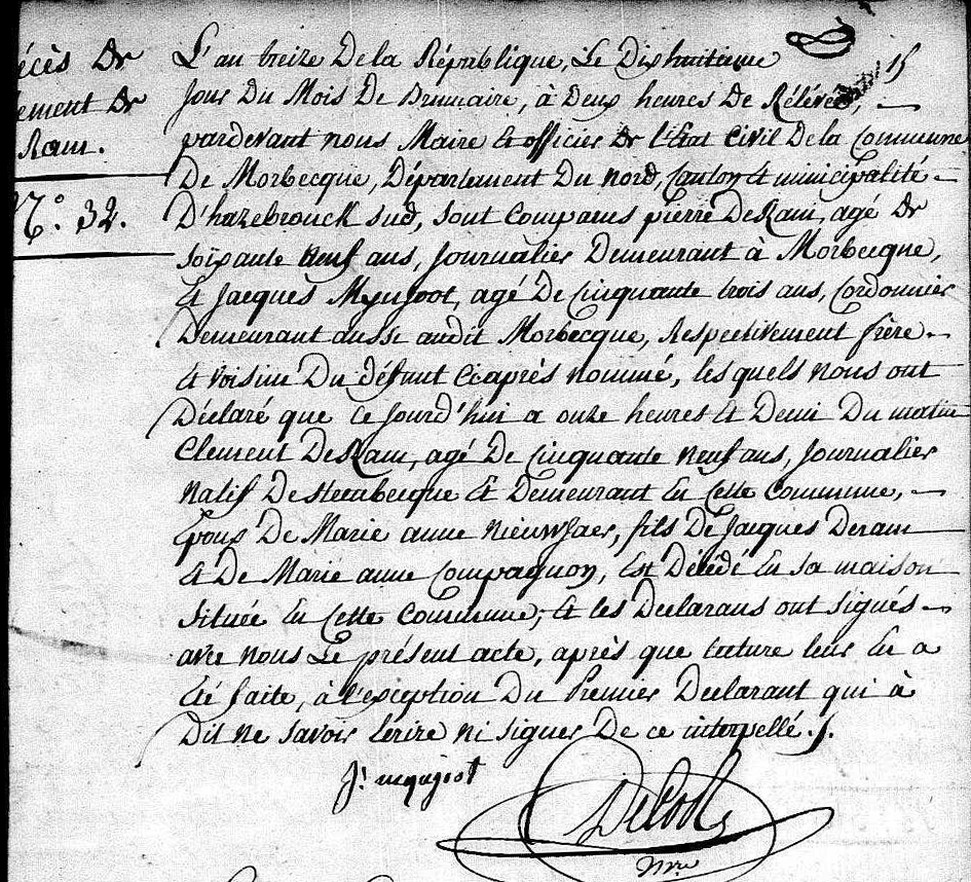 écès de
ement de
Ram.
N.° 32.
15
L'an treize De la République, Le Dixhuitieme
Jour Du Mois De Brumaire, à Deux heures De Rélévée,
pardevant nous Maire et officier de l'Etat Civil De la Commune
De Morbecque, Département Du nord, Canton et municipalité
D'hazebrouck sud, sont comparus pierre DeRam, agé de
soixante neuf ans, Journalier Demeurant à Morbecque,
Et Jacques agé De Cinquante trois ans, Cordonnier
Demeurant aussi audit Morbecque, Respectivement frère
Et voisin Du défunt Ciaprès nommé, les quels nous ont
Déclaré que ce Jourd'hui a onze heures et Demi Du matin
Clement DeRam, agé De Cinquante neuf ans, Journalier
natif De steenbecque Et Demeurant En Cette Commune,
Epoux De Marie anne fils De Jacques Deram
Et De Marie anne Compagnon, Est Décédé En sa maison
située En Cette Commune, Et les Declarans ont signés
avec nous Le présent acte, après que lecture leur En a
Eté faite, à l'exception Du Premier Declarant qui à
Dit ne savoir Ecrire ni signer De ce interpellé.